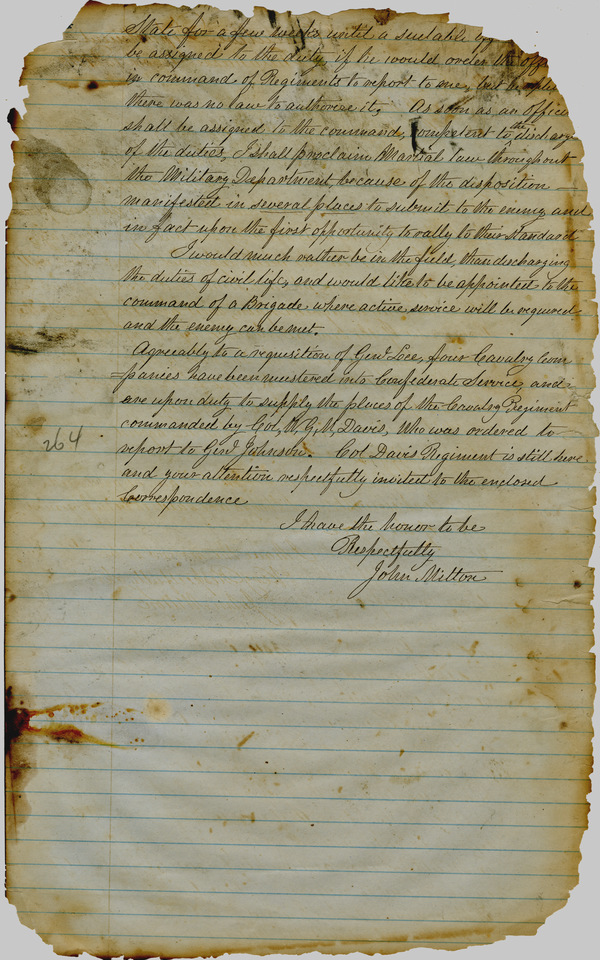 State for a few weeks until a suitable
be assigned to the duty, if he would order the
in command of Regiments to report to me, but he
there was no law to authorize it. As soon as an office
shall be assigned to the command, competent to the discharge
of the duties, I shall proclaim Martial law throughout
the Military Department, because of the disposition
manifested in several places to submit to the enemy and
in fact upon the first opportunity to rally to their standard
I would much rather be in the field, than discharging
the duties of civil life, and would like to be appointed to the
command of a Brigade where active service will be required
and the enemy can be met.
Agreeably to a requisition of Genl Lee, four Cavalry Com
panies have been mustered into Confederate Service, and
are upon duty to supply the places of the Cavalry Regiment
commanded by Col, W, G, M, Davis, who was ordered to
report to Genl Johnson. Col Davis Regiment is still here
and your attention respectfully invited to the enclosed
Correspondence
264
I have the honor to be
Respectfully
John Milton